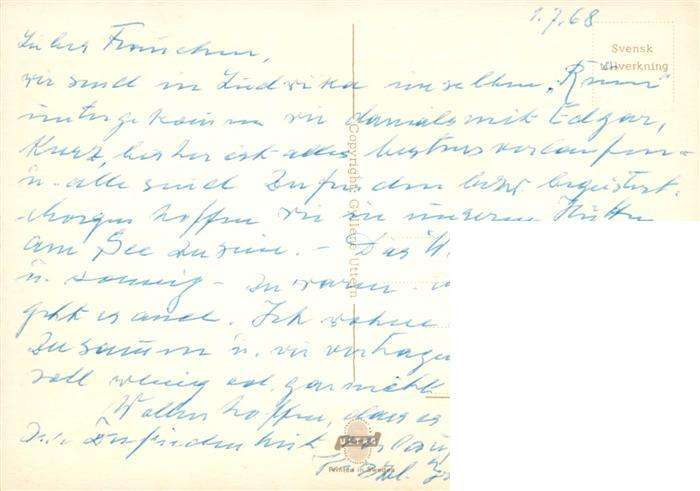 1.7.68
Svensk
tillverkning
wir sind in Ludvika im selben „
untergekommen wie damals mit Edgar,
Kurz, bisher ist alles bestens verlaufen -
u. alle sind zufrieden bzw begeistert.
Morgen hoffen wir in unserer Hütte
am See zu sein. - Das
u. sonnig - zu warm
geht es auch. Ich wohne
zusammen u. wir vertragen
soll wenig od. gar nicht
Wollen hoffen, dass es
Zufriedenheit
Copyright: Galleri Uttern
ULTRA
Printed in Sweden